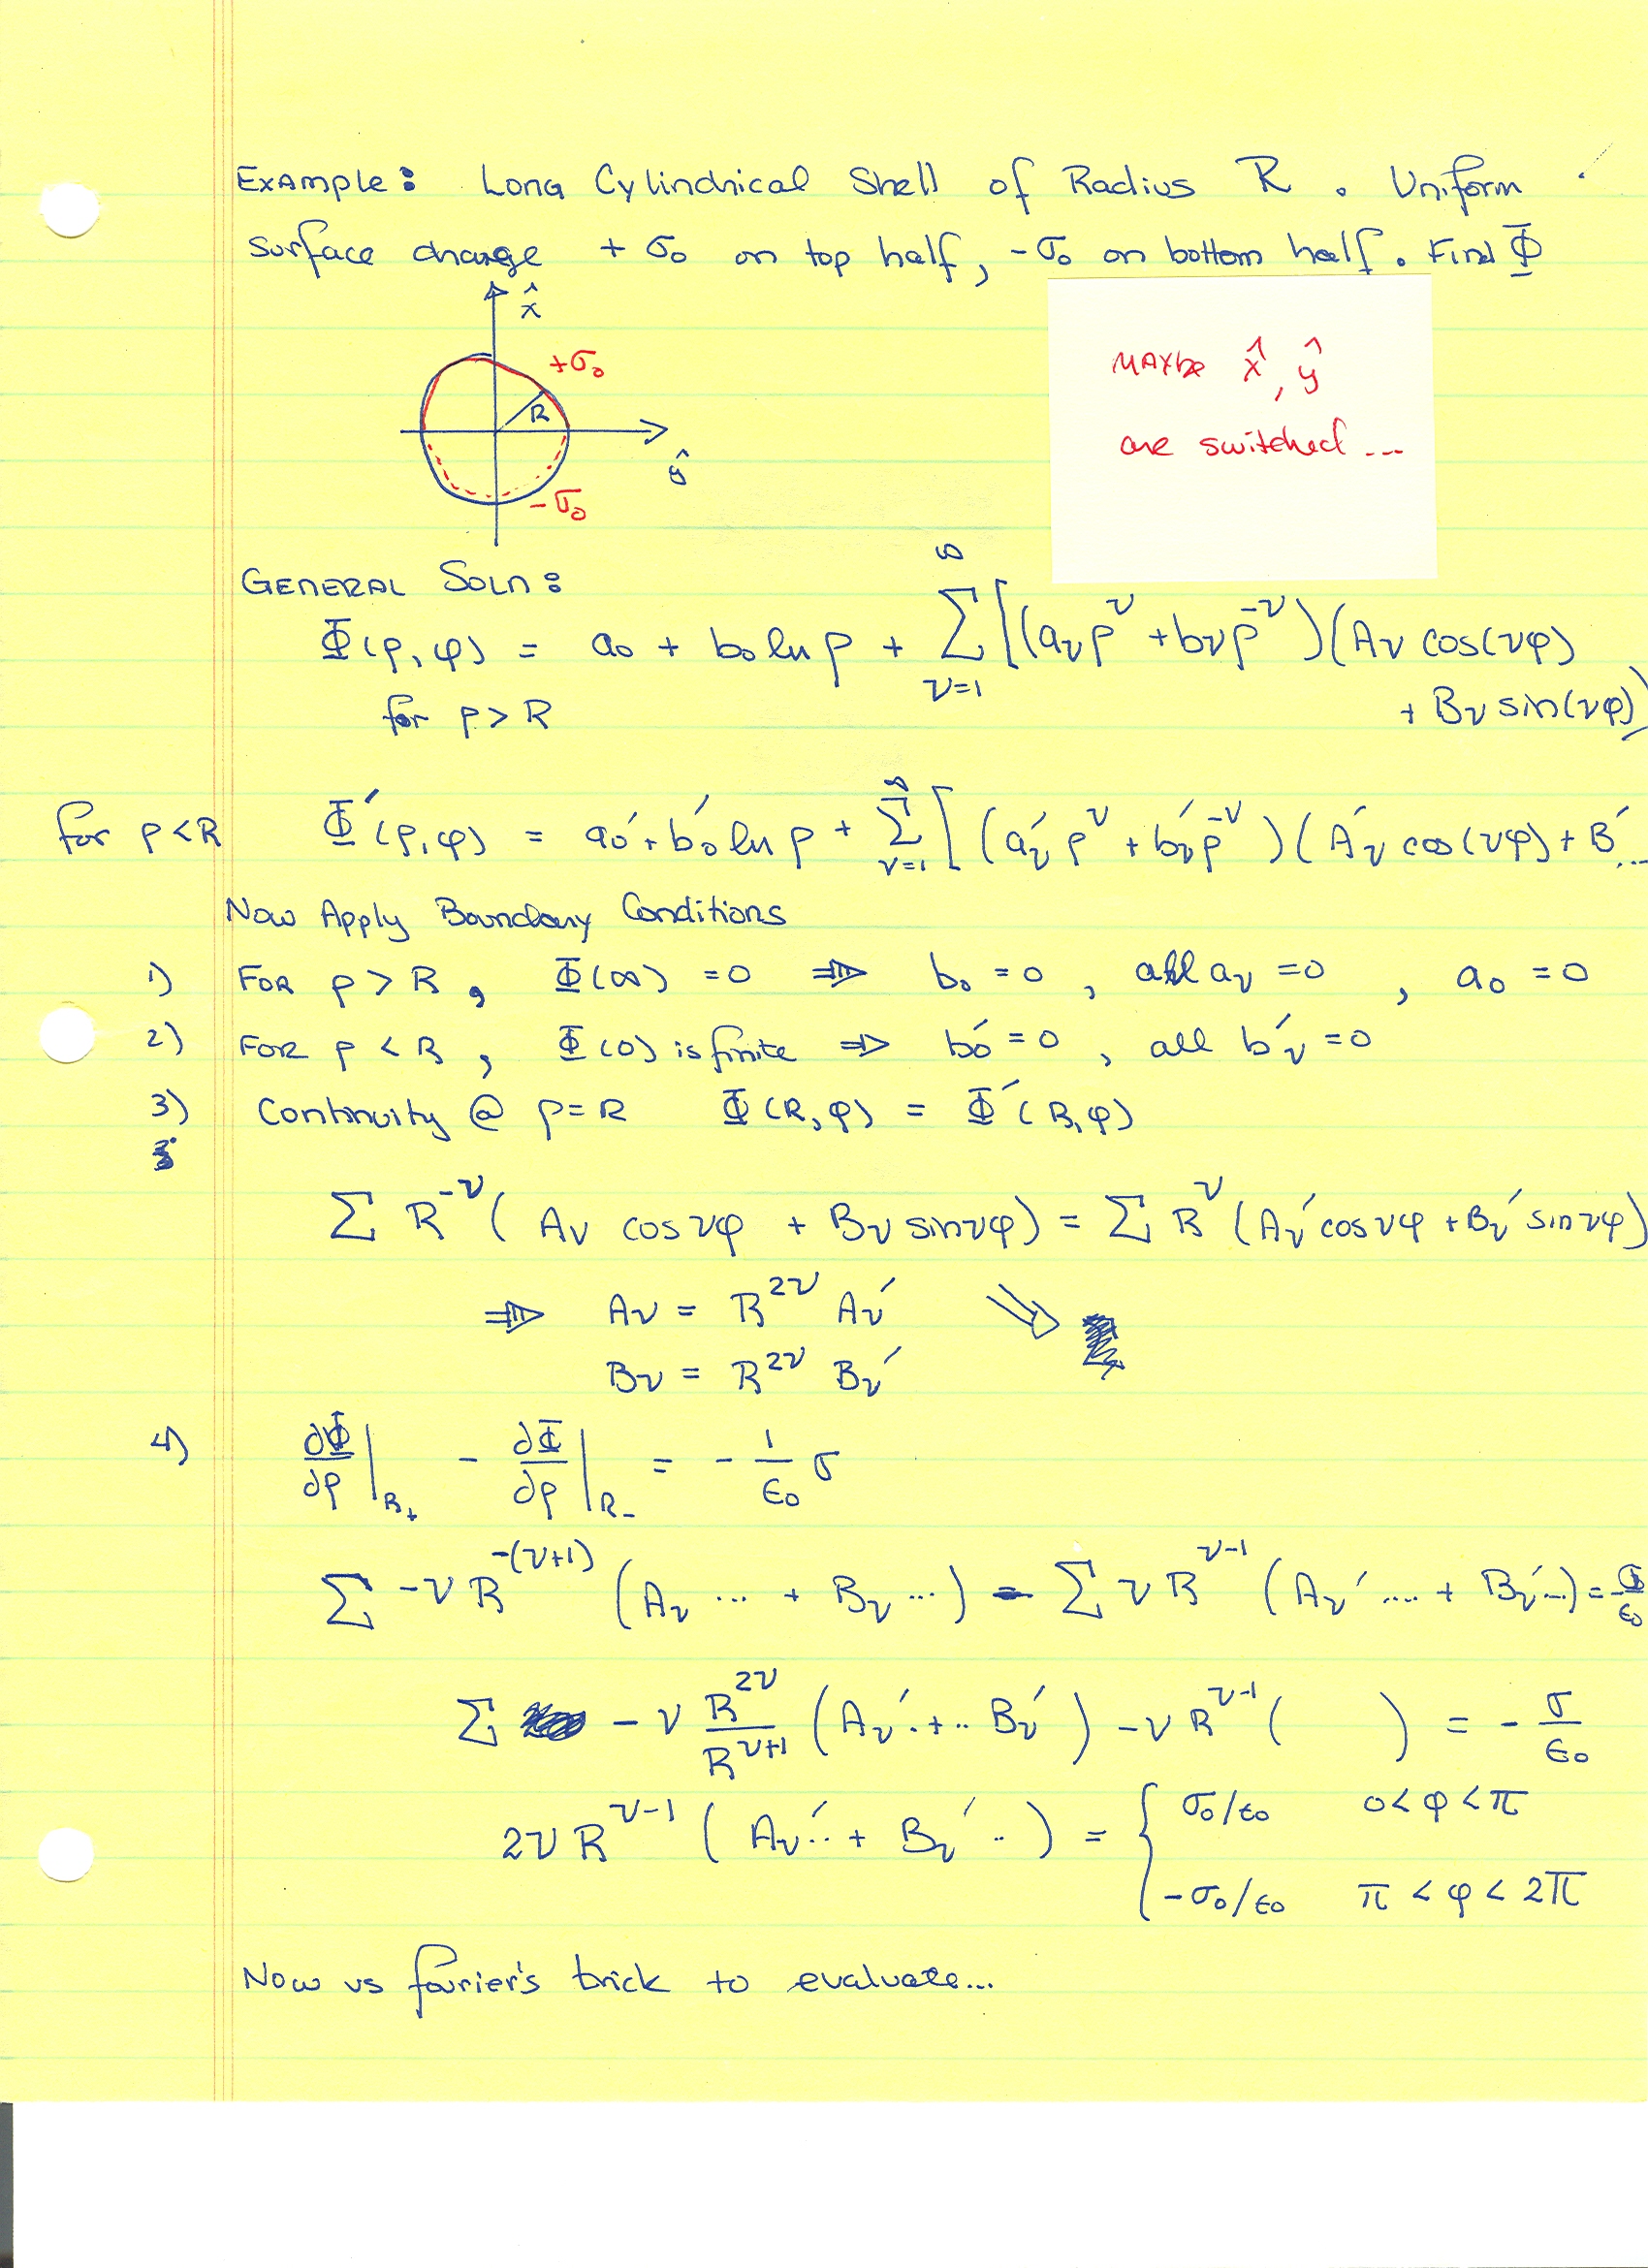 Example: Long Cylindrical Shell of Radius R. Uniform
surface charge +σ₀ on top half, -σ₀ on bottom half. Find Φ
x̂
+σ₀
R
ŷ
-σ₀
MAYbe x̂, ŷ
are switched ...
General Soln:
Φ(ρ,φ) = a₀ + b₀ ln ρ + ∑_{ν=1}^{∞} [(a_ν ρ^ν + b_ν ρ^{-ν})(A_ν cos(νφ)
+ B_ν sin(νφ))
for ρ > R
for ρ < R Φ′(ρ,φ) = a₀′ + b₀′ ln ρ + ∑_{ν=1}^{∞} [(a_ν′ ρ^ν + b_ν′ ρ^{-ν})(A_ν′ cos(νφ) + B′...
Now Apply Boundary Conditions
1) For ρ > R, Φ(∞) = 0 ⇒ b₀ = 0, all a_ν = 0, a₀ = 0
2) For ρ < R, Φ(0) is finite ⇒ b₀′ = 0, all b_ν′ = 0
3) Continuity @ ρ=R Φ(R,φ) = Φ′(R,φ)
∑ R^{-ν} (A_ν cos νφ + B_ν sin νφ) = ∑ R^ν (A_ν′ cos νφ + B_ν′ sin νφ)
⇒ A_ν = R^{2ν} A_ν′
B_ν = R^{2ν} B_ν′
4) ∂Φ/∂ρ|_{R+} - ∂Φ/∂ρ|_{R-} = - 1/ε₀ σ
∑ -ν R^{-(ν+1)} (A_ν ... + B_ν ...) - ∑ ν R^{ν-1} (A_ν′ .... + B_ν′ ...) = -σ/ε₀
∑ - ν R^{2ν}/R^{ν+1} (A_ν′ . + .. B_ν′) - ν R^{ν-1} ( ) = - σ/ε₀
2ν R^{ν-1} (A_ν′ .. + B_ν′ ..) = { σ₀/ε₀ 0 < φ < π
-σ₀/ε₀ π < φ < 2π
Now us fourier's trick to evaluate...